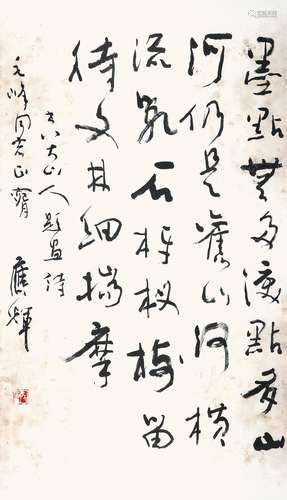 墨點無多淚點多山
河仍是舊山河橫
流亂石枒杈樹留
待文林細揣摩
书八大山人題画詩
峰同志正
應輝